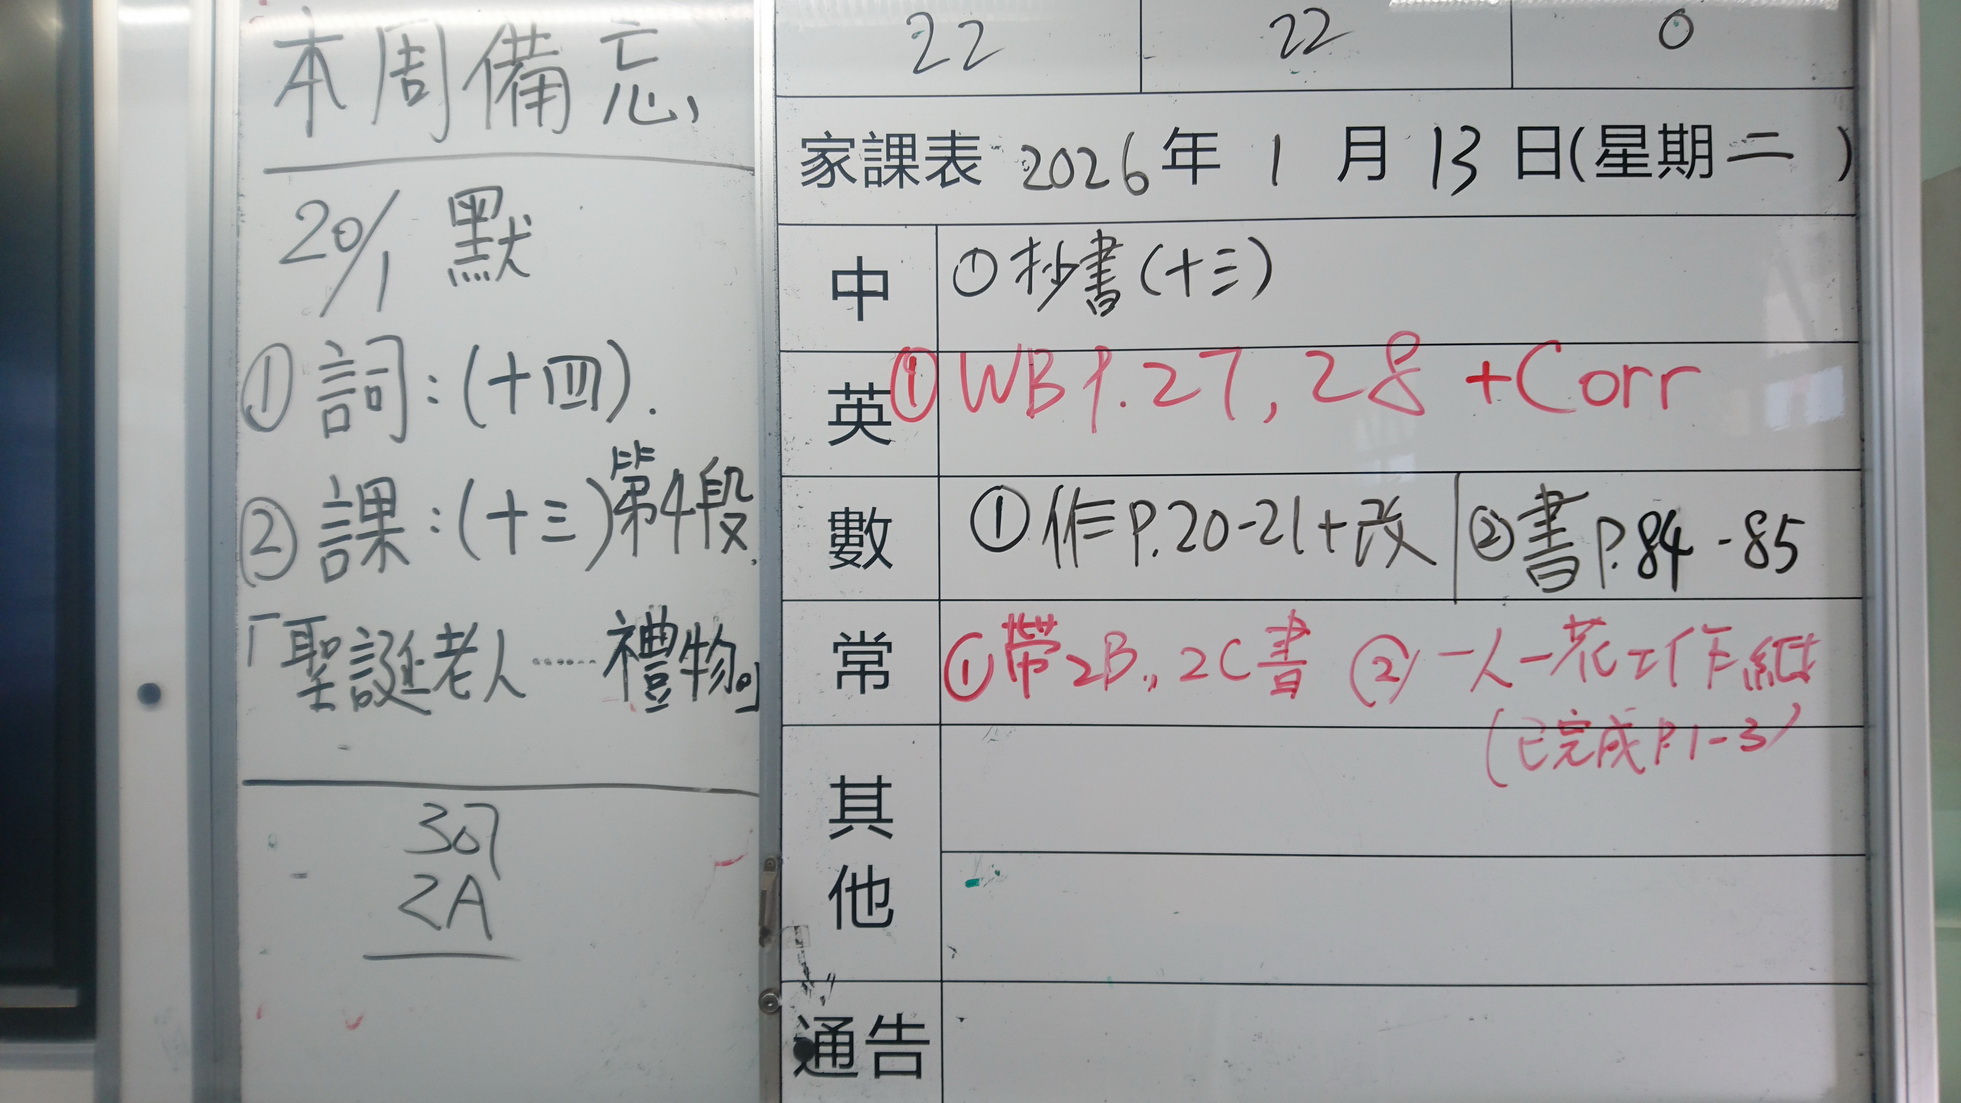 本周備忘
20/1 默
① 詞：(十四).
② 課：(十三)第4段.
「聖誕老人……禮物。」
307
2A
22 22 0
家課表 2026年 1 月 13 日(星期二 )
中 ①抄書(十三)
英 ①WB P.27, 28 +Corr
數 ①作P.20-21+改 ②書P.84-85
常 ①帶2B, 2C書 ②一人一花工作紙
(已完成P.1-3)
其他
通告